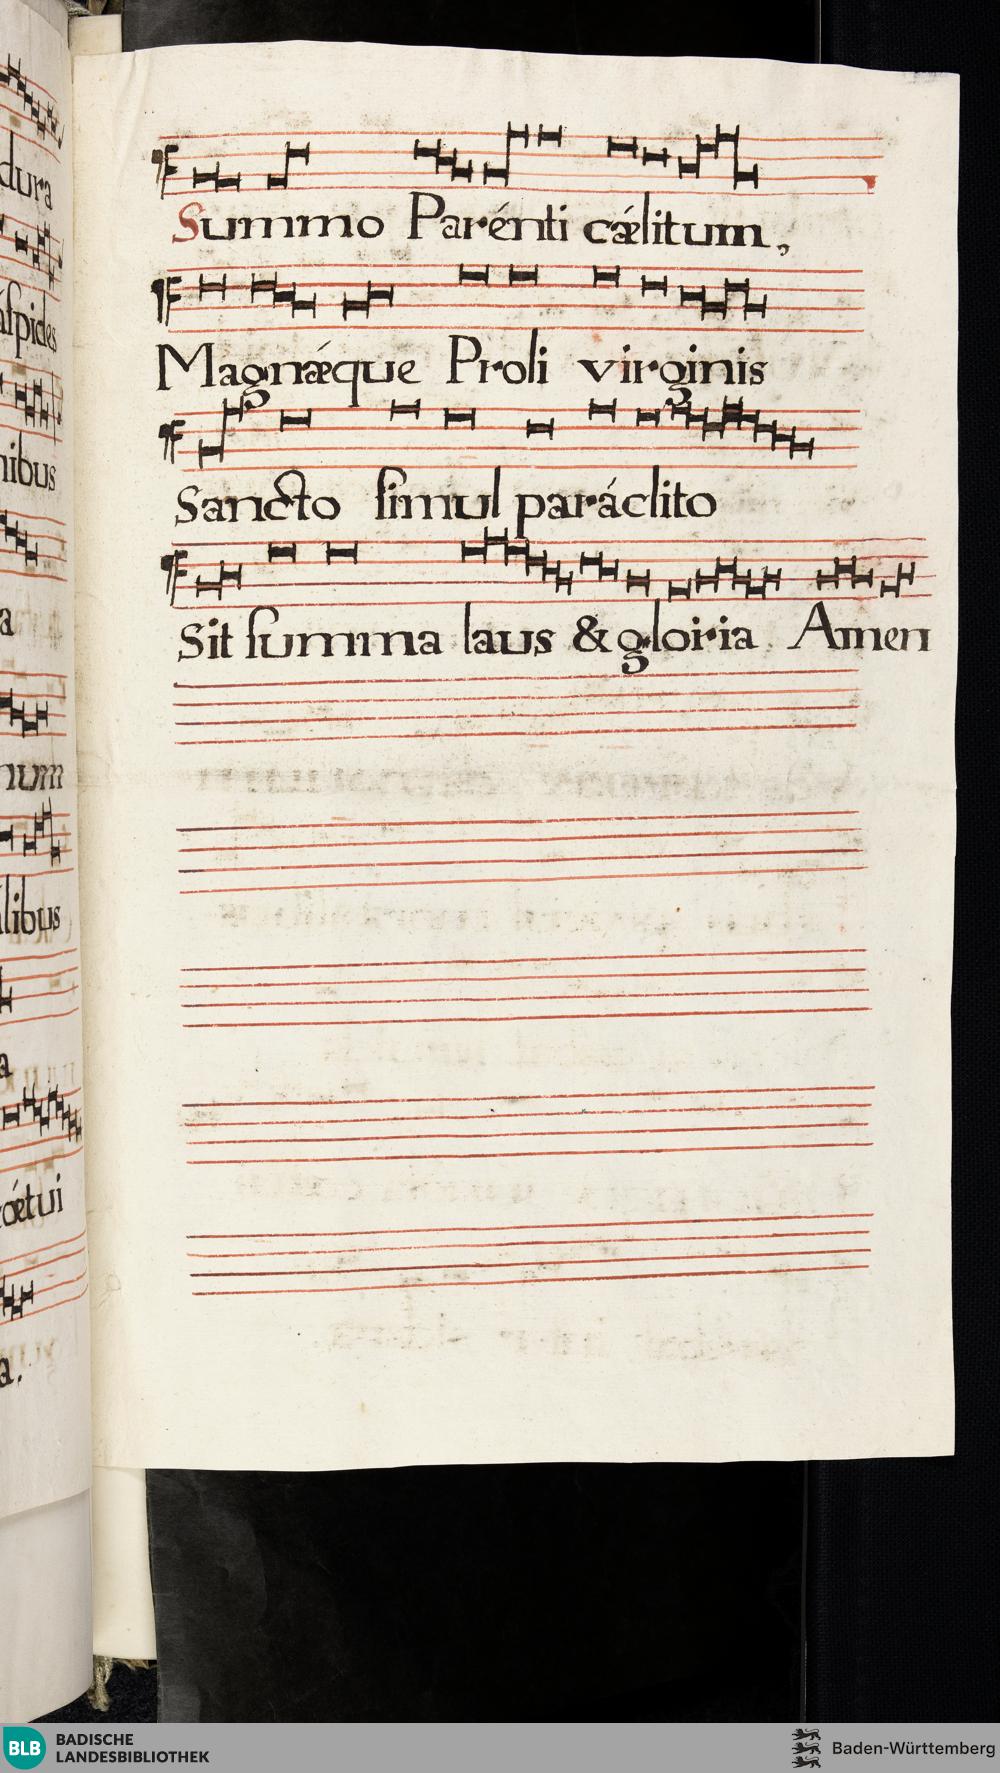 dura
Summo Parénti cǽlitum,
Magnǽque Proli virginis
Sancto ſimul paráclito
Sit ſumma laus & gloiria Amen
aſpides
nibus
a
num
libus
a
oétui
a.
BLB BADISCHE LANDESBIBLIOTHEK
Baden-Württemberg